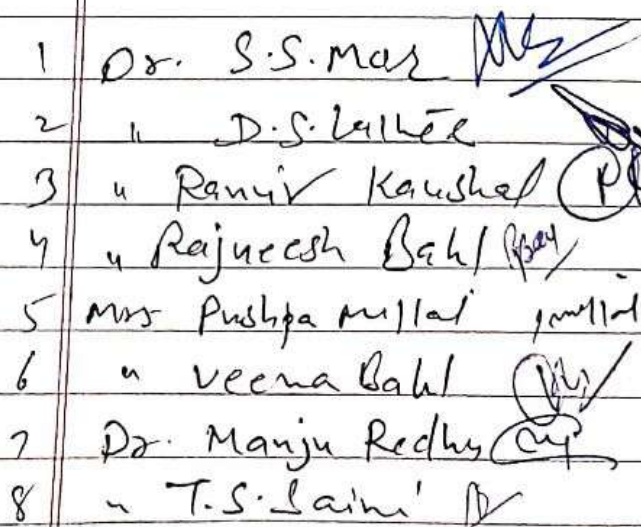 1 Dr. S.S. Mar
2 " D.S.
3 " Ranvir Kaushal
4 " Rajneesh Bahl
5 Mrs Pushpa Mittal
6 " Veena Bahl
7 Dr. Manju Redhu
8 " T.S. Saini